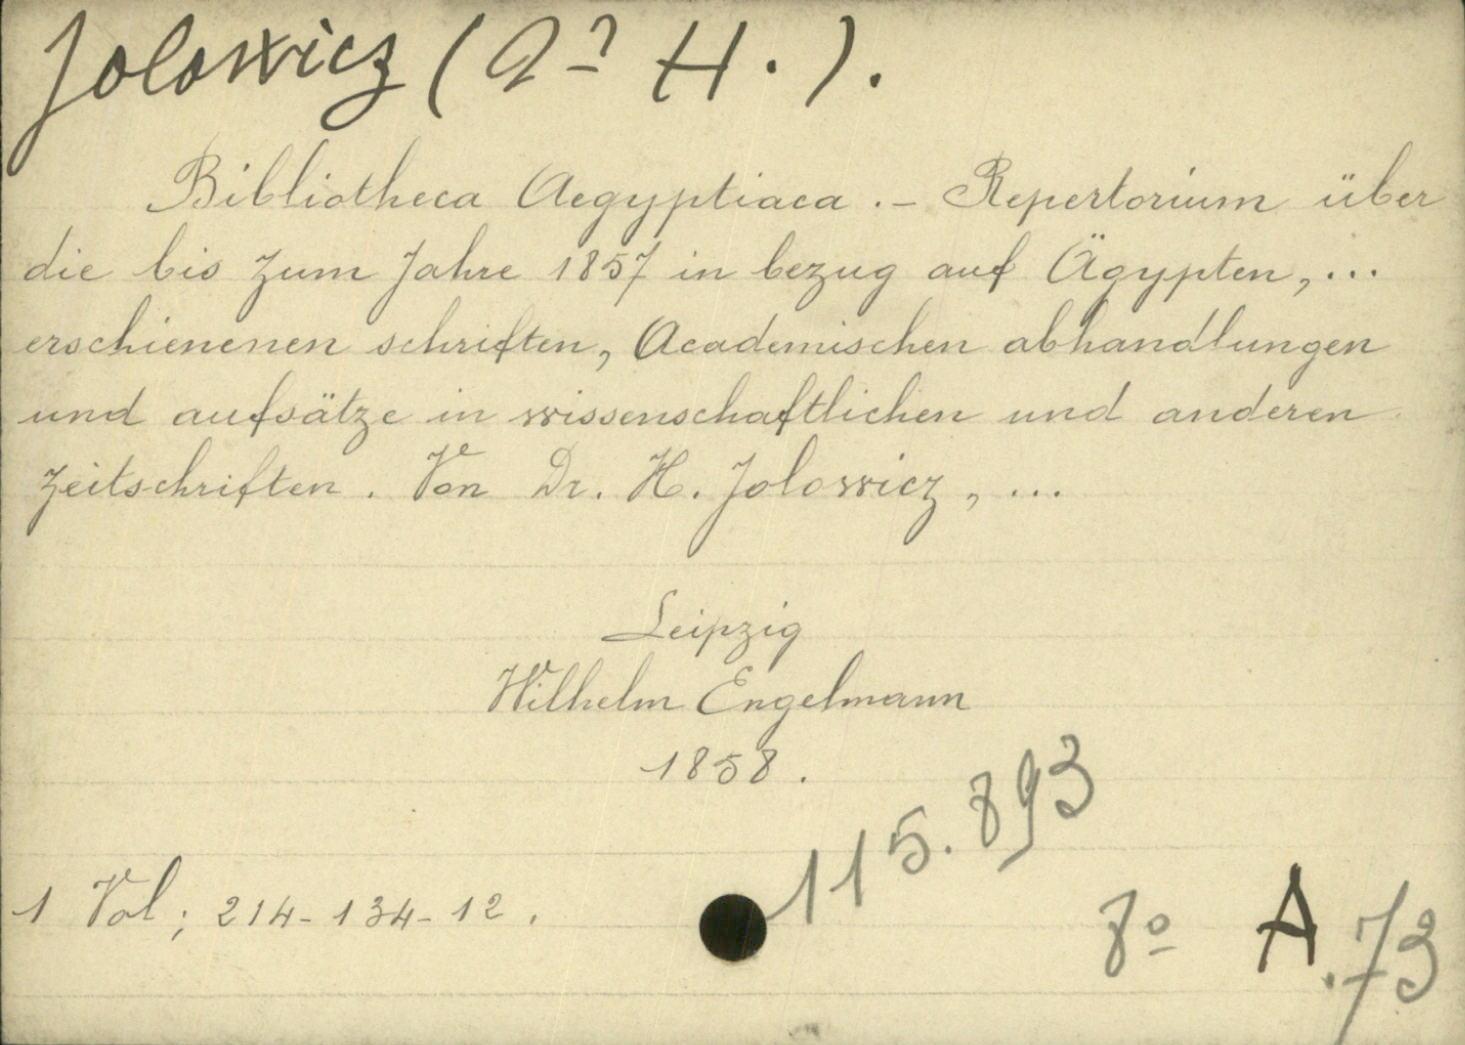 Jolowicz (Dr H.).
Bibliotheca Aegyptiaca .- Repertorium über
die bis zum Jahre 1857 in bezug auf Ägypten, ...
erschienenen schriften, Academischen abhandlungen
und aufsätze in wissenschaftlichen und anderen
zeitschriften. Von Dr. H. Jolowicz, ...
Leipzig
Wilhelm Engelmann
1858.
115.893
1 Vol; 214-134-12.
8º A.73